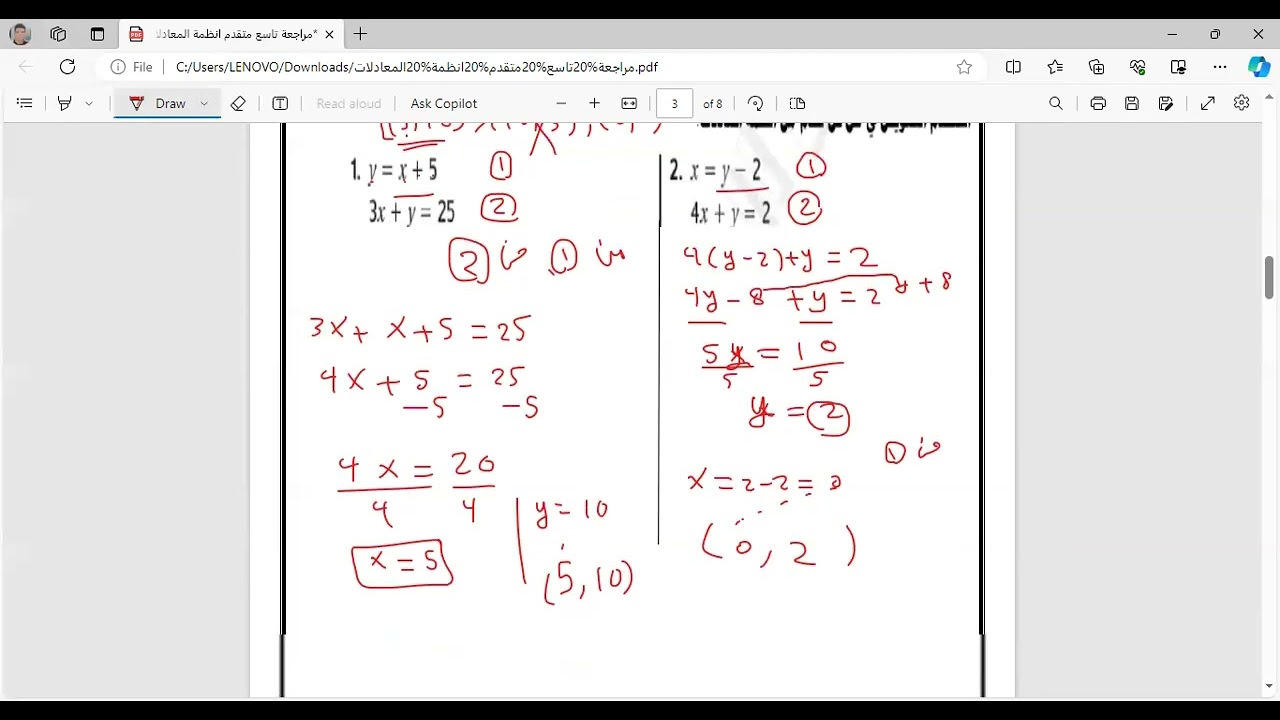 *مراجعة تاسع متقدم انظمة المعادلا
File C:/Users/LENOVO/Downloads/مراجعة%20تاسع%20متقدم%20انظمة%20المعادلات.pdf
Draw Read aloud Ask Copilot 3 of 8
1. y = x + 5 ①
3x + y = 25 ②
② في ① من
3x + x + 5 = 25
4x + 5 = 25
-5 -5
4x = 20
4 4
x = 5
y = 10
(5, 10)
2. x = y − 2 ①
4x + y = 2 ②
4(y-2)+y = 2
4y - 8 + y = 2 + 8
5y = 10
5 5
y = 2
① في
x = 2-2 = 0
(0, 2)